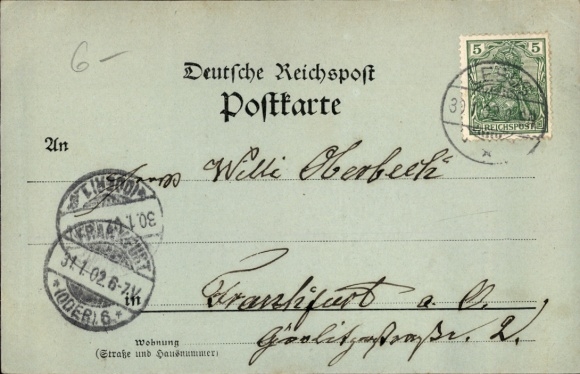 6-
5 5
REICHSPOST
Deutsche Reichspost
Postkarte
An
Herrn Willi Oberbeck
30.1.
FRANKFURT
31.1.02.6-7V.
*(ODER).6.*
in Frankfurt a. O.
Görlitzstraße. 2.
Wohnung
(Straße und Hausnummer)